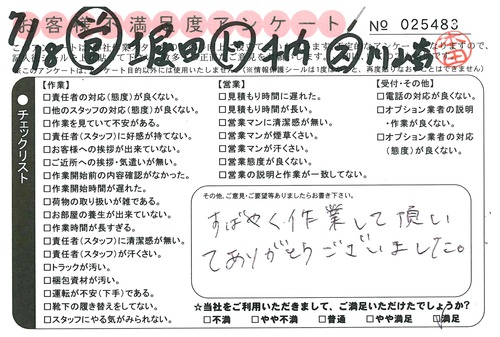 お客様不満足度アンケート
No 025483
7/18 富 堀田 ト 柄 合 川崎
※このアンケートは、アンケート目的以外には使用いたしません。
チェックリスト
【作業】
□責任者の対応(態度)が良くない。
□他のスタッフの対応(態度)が良くない。
□作業を見ていて不安がある。
□責任者(スタッフ)に好感が持てない。
□お客様への挨拶が出来ていない。
□ご近所への挨拶・気遣いが無い。
□作業開始前の内容確認がなかった。
□作業開始時間が遅れた。
□荷物の取り扱いが雑である。
□お部屋の養生が出来ていない。
□作業時間が長すぎる。
□責任者(スタッフ)に清潔感が無い。
□責任者(スタッフ)が汗くさい。
□トラックが汚い。
□梱包資材が汚い。
□運転が不安(下手)である。
□靴下の履き替えをしてない。
□スタッフにやる気がみられない。
【営業】
□見積もり時間に遅れた。
□見積もり時間が長い。
□営業マンに清潔感が無い。
□営業マンが煙草くさい。
□営業マンが汗くさい。
□営業態度が良くない。
□営業の説明と作業が一致してない。
【受付・その他】
□電話の対応が良くない。
□オプション業者の説明
・作業が良くない。
□オプション業者の対応
(態度)が良くない。
その他、ご意見・ご要望等ありましたらお書き下さい。
すばやく作業して頂い
てありがとうございました。
☆当社をご利用いただきまして、ご満足いただけたでしょうか?
□不満 □やや不満 □普通 □やや満足 □満足